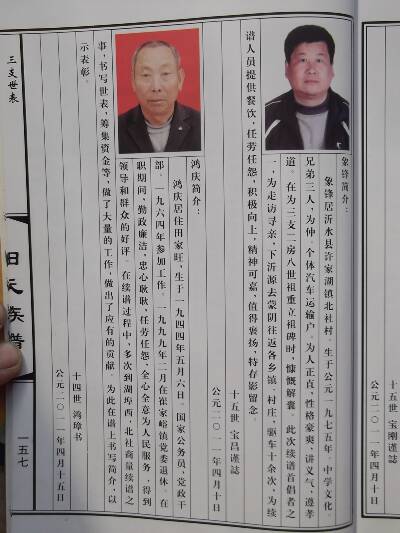 十五世 宝刚谨誌
公元二〇一一年四月十五日
象锋简介：
象锋居沂水县许家湖镇北社村。生于公元一九七五年，中学文化。
兄弟三人，为仲。个体汽车运输户。为人正直，性格豪爽、讲义气，遵孝
道。在为三支二房八世祖重立祖碑时，慷慨解囊。此次续谱首倡者之
一，为走访寻亲，下沂源去蒙阴往返各乡镇、村庄，驱车十余次，为续
谱人员提供餐饮，任劳任怨，积极向上，精神可嘉，值得褒扬，特存影留念
十五世 宝昌谨誌
公元二〇一一年四月十日
鸿庆简介：
鸿庆居住田家旺，生于一九四四年五月六日。国家公务员，党政干
部。一九六四年参加工作。一九九九年二月在崔家峪镇党委退休。在
职期间，勤政廉洁，忠心耿耿、任劳任怨，全心全意为人民服务，得到
领导和群众的好评。在续谱过程中，多次到湖埠西，北社商量续谱之
事，书写世表，筹集资金等，做了大量的工作，做出了应有的贡献。为此在谱上书写简介，以
示表彰。
十四世 鸿璋书
公元二〇一一年四月十五日
三支世表
族谱
一五七